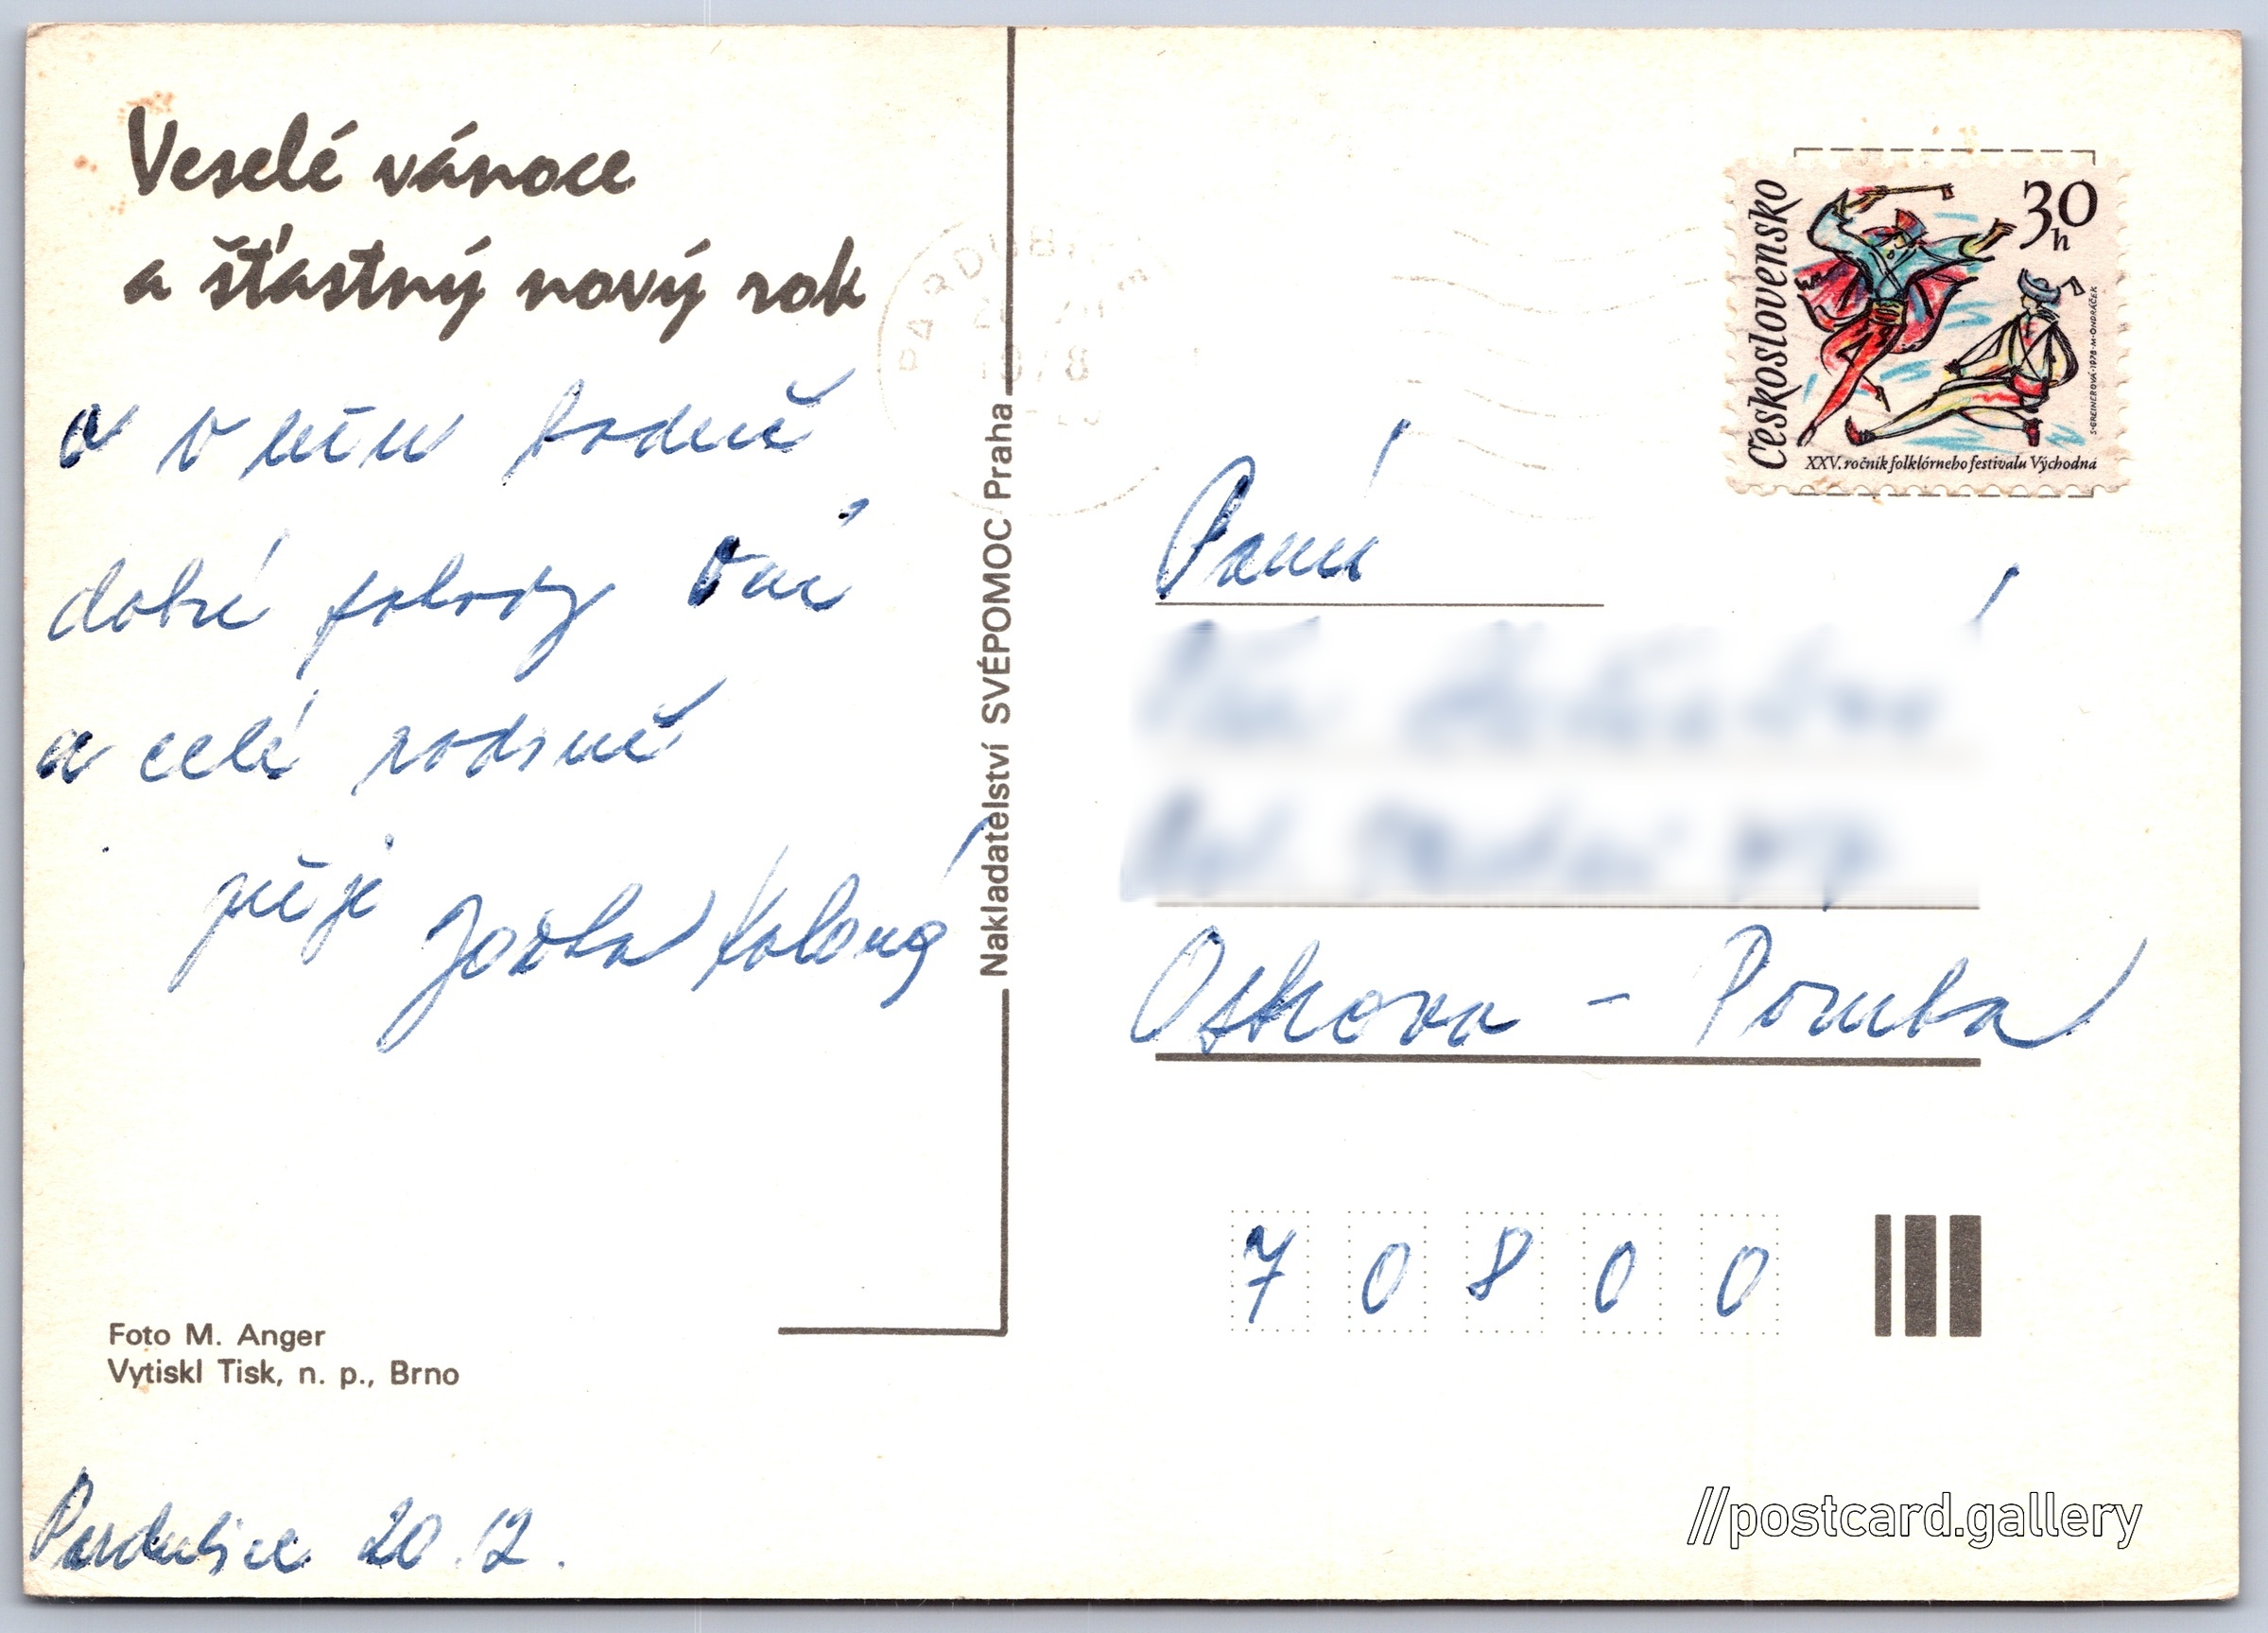 Veselé vánoce
a šťastný nový rok
a v něm hodně
dobré pohody Vám
a celé rodině
přeje Jarka
Pardubice 20.12.
Foto M. Anger
Vytiskl Tisk, n. p., Brno
Nakladatelství SVÉPOMOC Praha
PARDUBICE
Československo
30
h
XXV. ročník folklórneho festivalu Východná
S·GREINEROVÁ·1978·M·ONDRÁČEK
Paní
Ostrava - Poruba
7 0 8 0 0
//postcard.gallery